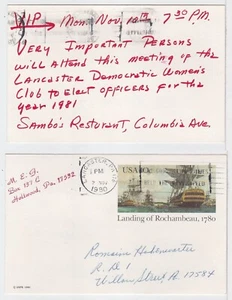 VIP Mon. Nov. 10th 7:30 P.M.
Very Important Persons
will Attend this meeting of the
Lancaster Democratic Women's
Club to Elect officers for the
year 1981
Sambo's Resturant, Columbia Ave.
M. E. G.
Box 157 C
Holtwood, Pa. 17532
LANCASTER, PA
PM
1980
USA 10c
Landing of Rochambeau, 1780
Romaine
R. D. 1
Willow Street, Pa 17584
© USPS 1980